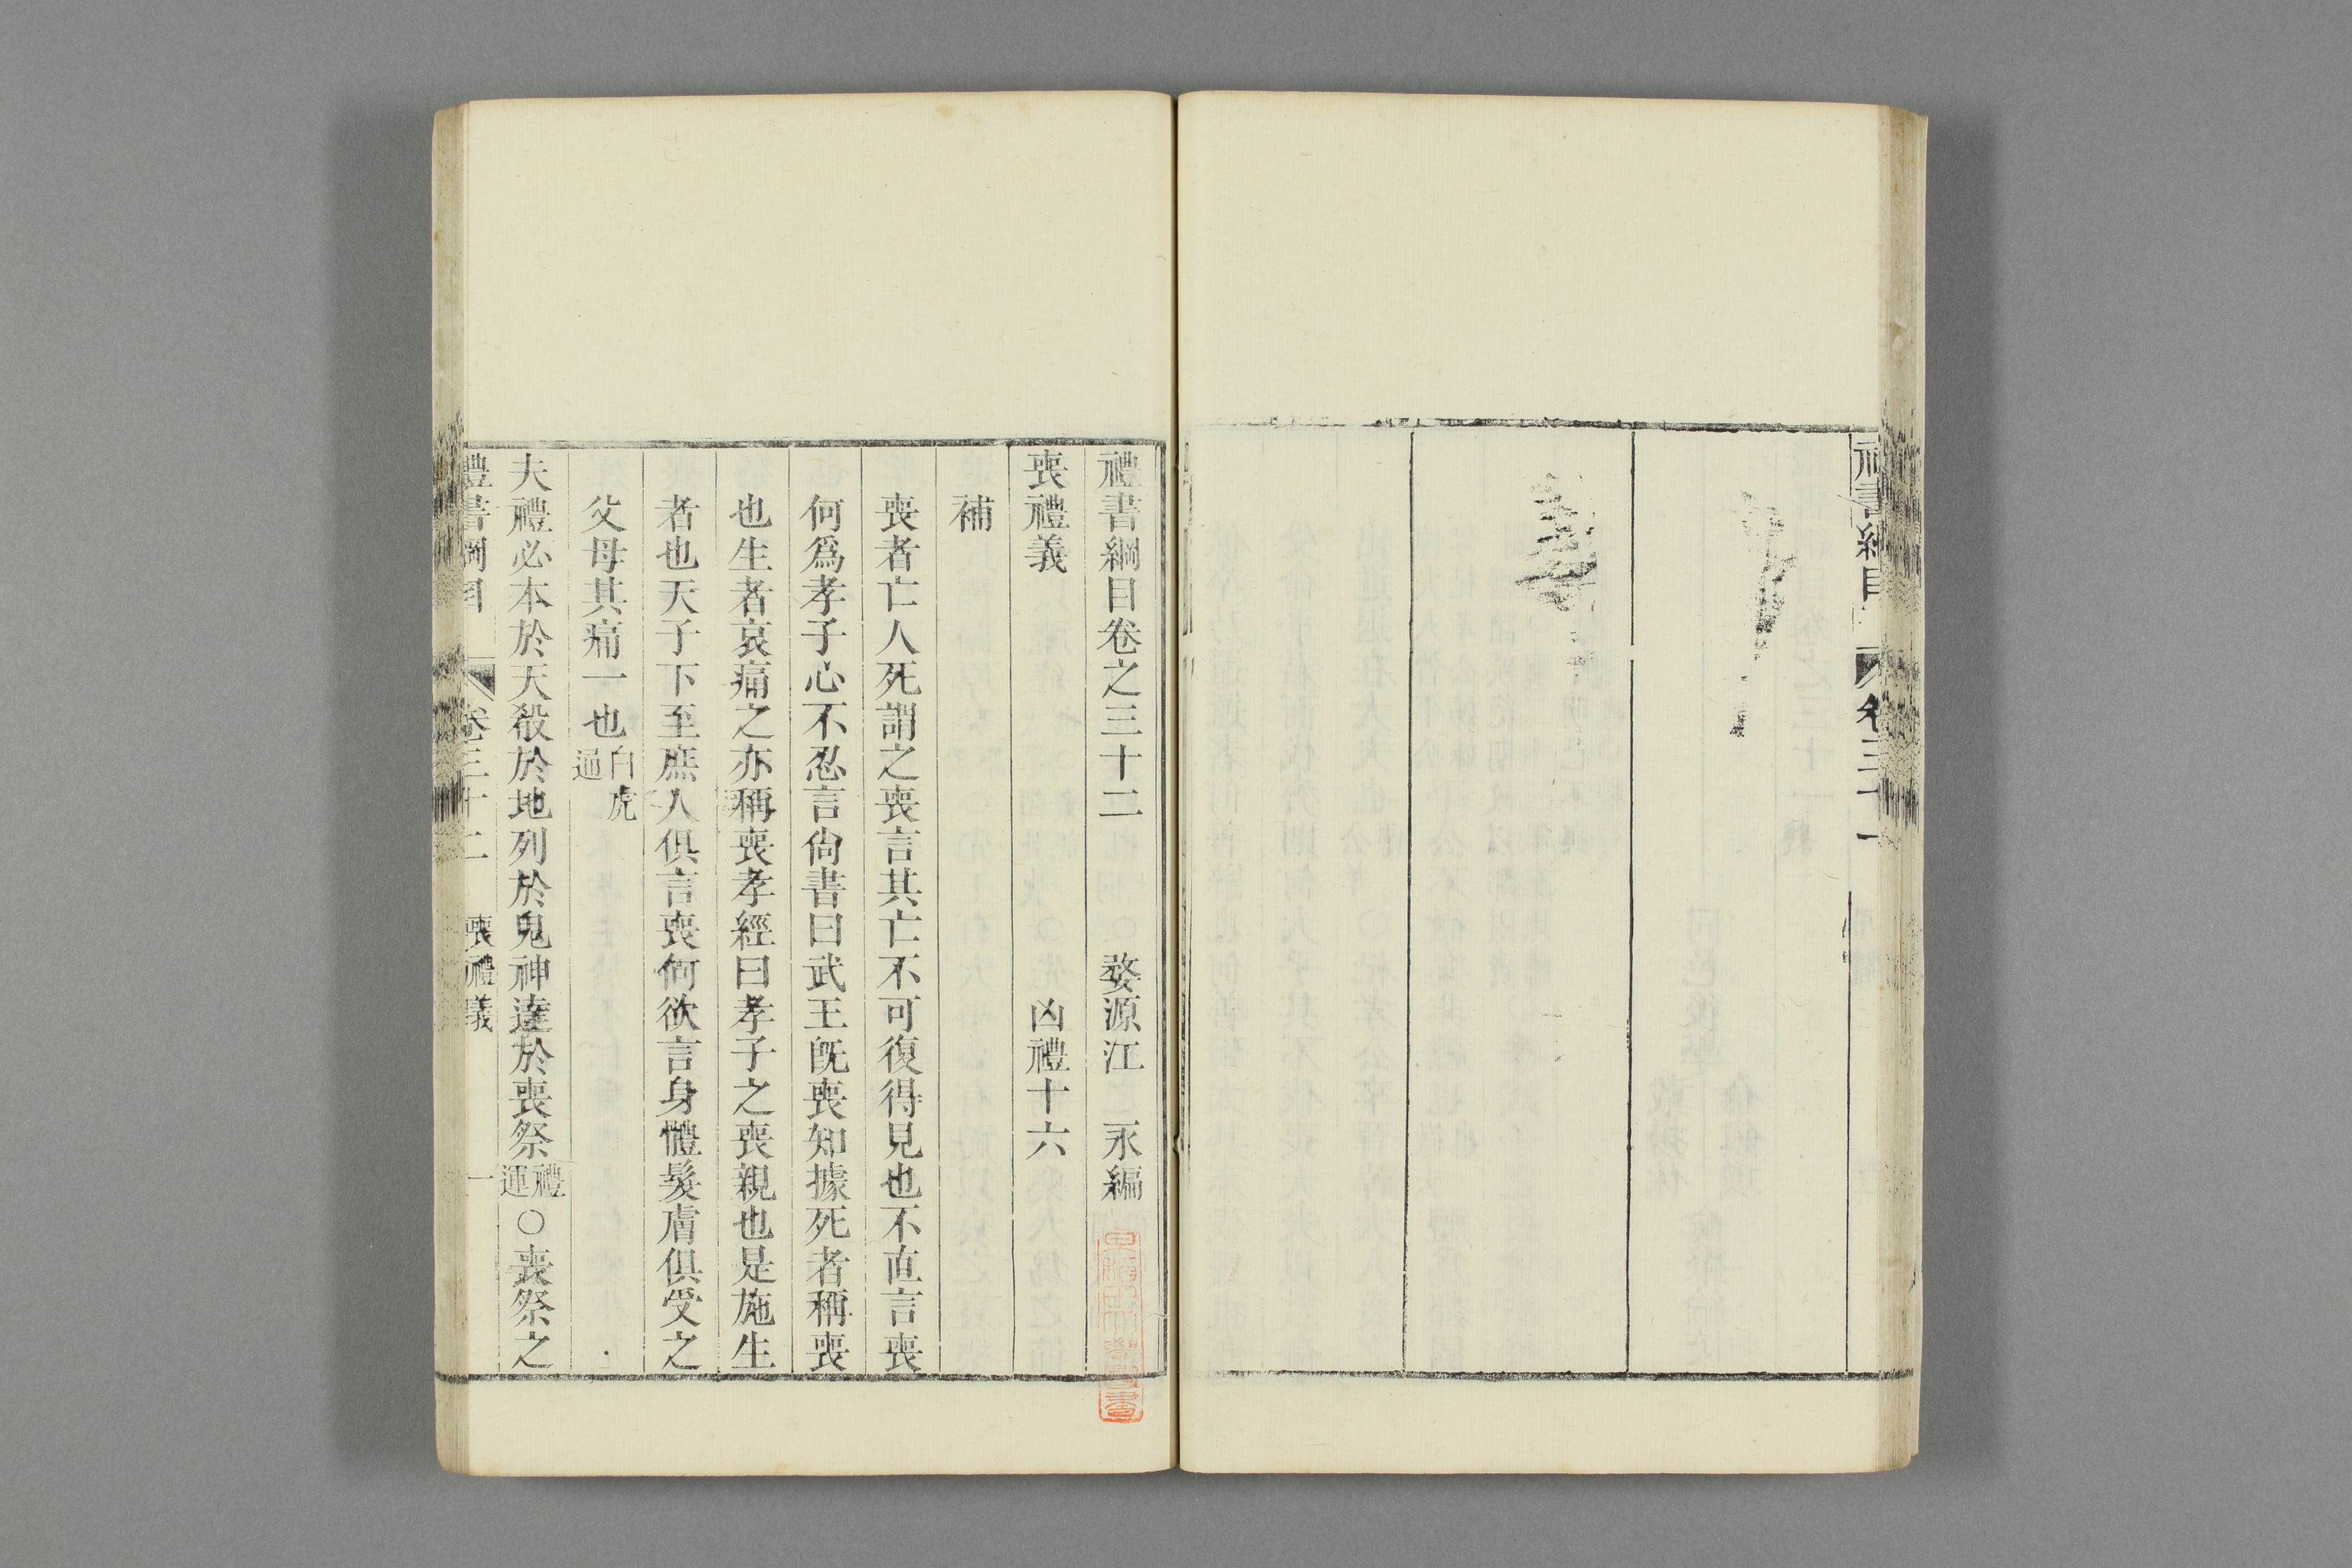 禮書綱目卷三十一
禮書綱目卷之三十二　婺源江　永編
喪禮義　凶禮十六
補
喪者亡人死謂之喪言其亡不可復得見也不直言喪
何爲孝子心不忍言尙書曰武王旣喪知據死者稱喪
也生者哀痛之亦稱喪孝經曰孝子之喪親也是施生
者也天子下至庶人俱言喪何欲言身體髮膚俱受之
父母其痛一也白虎通
夫禮必本於天殽於地列於鬼神達於喪祭禮運○喪祭之
禮書綱目　卷三十二　喪禮義　一